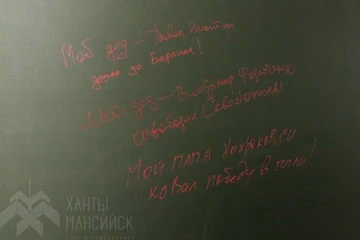 Мой дед – Павел Никитин
дошел до Берлина!
Мой дед – Владимир
освободил Севастополь!
Мой папа Хохряков Сергей
ковал победу в тылу!
ХАНТЫ
МАНСИЙСК